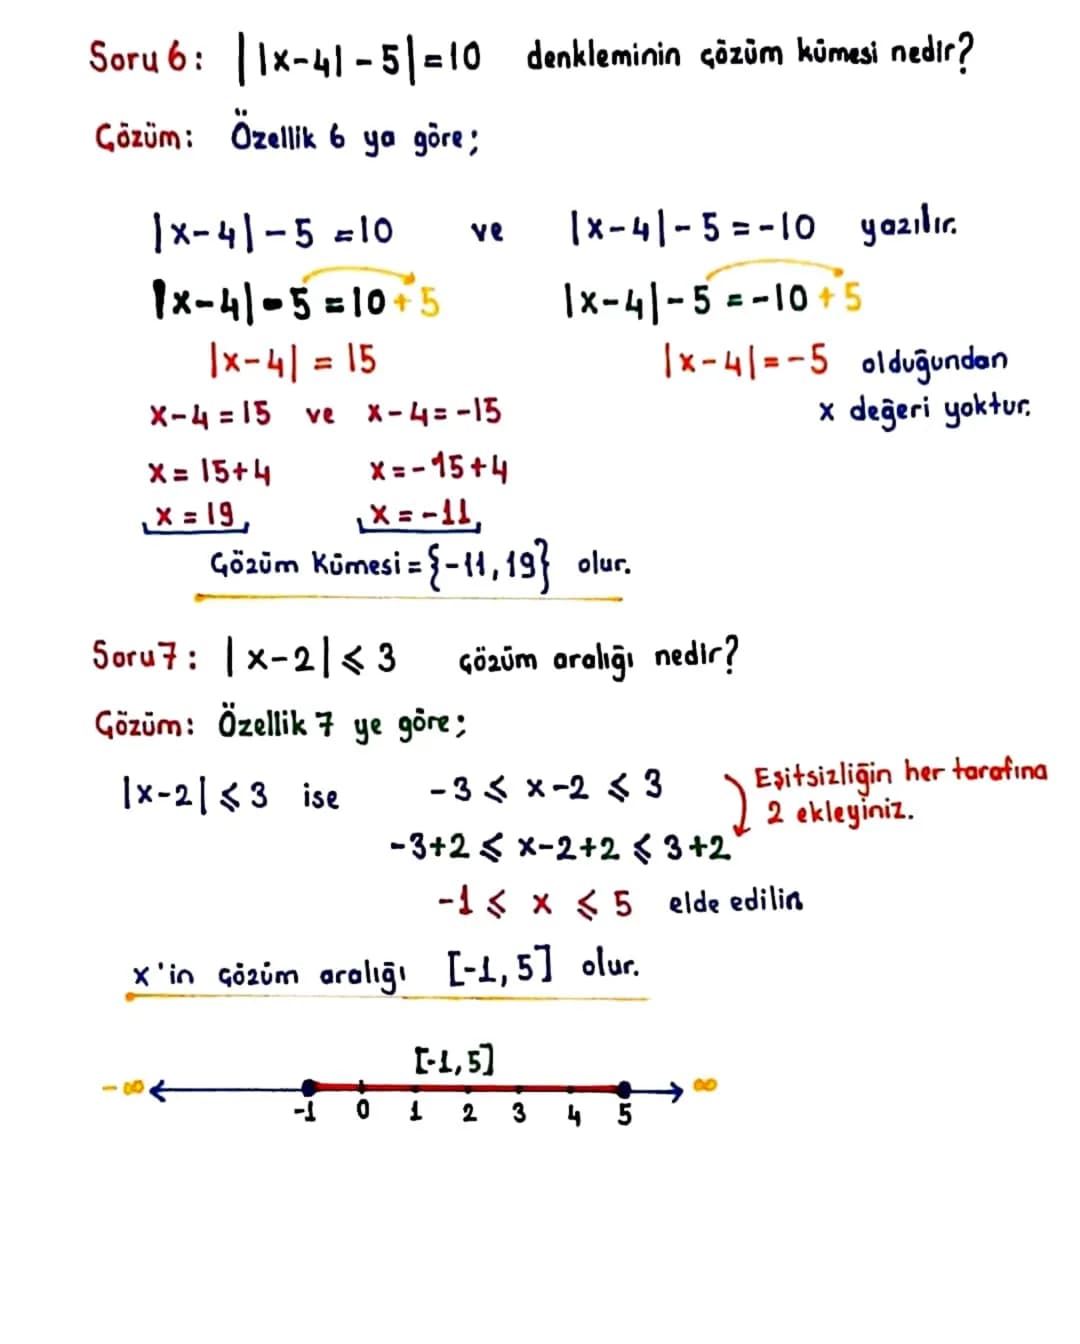 Soru 6: ||x-4|-5|=10 denkleminin çözüm kümesi nedir?
Çözüm: Özellik 6 ya göre;
|x-4|-5=10 ve |x-4|-5=-10 yazılır.
|x-4|-5=10+5 |x-4|-5=-10+5
|x-4|=15 |x-4|=-5 olduğundan
x-4=15 ve x-4=-15 x değeri yoktur.
x=15+4 x=-15+4
x=19 x=-11
Çözüm Kümesi={-11,19} olur.
Soru7: |x-2|⩽3 çözüm aralığı nedir?
Çözüm: Özellik 7 ye göre;
|x-2|⩽3 ise -3⩽x-2⩽3 Eşitsizliğin her tarafına
2 ekleyiniz.
-3+2⩽x-2+2⩽3+2
-1⩽x⩽5 elde edilin
x'in çözüm aralığı [-1,5] olur.
[-1,5]
-∞ ∞
-1 0 1 2 3 4 5